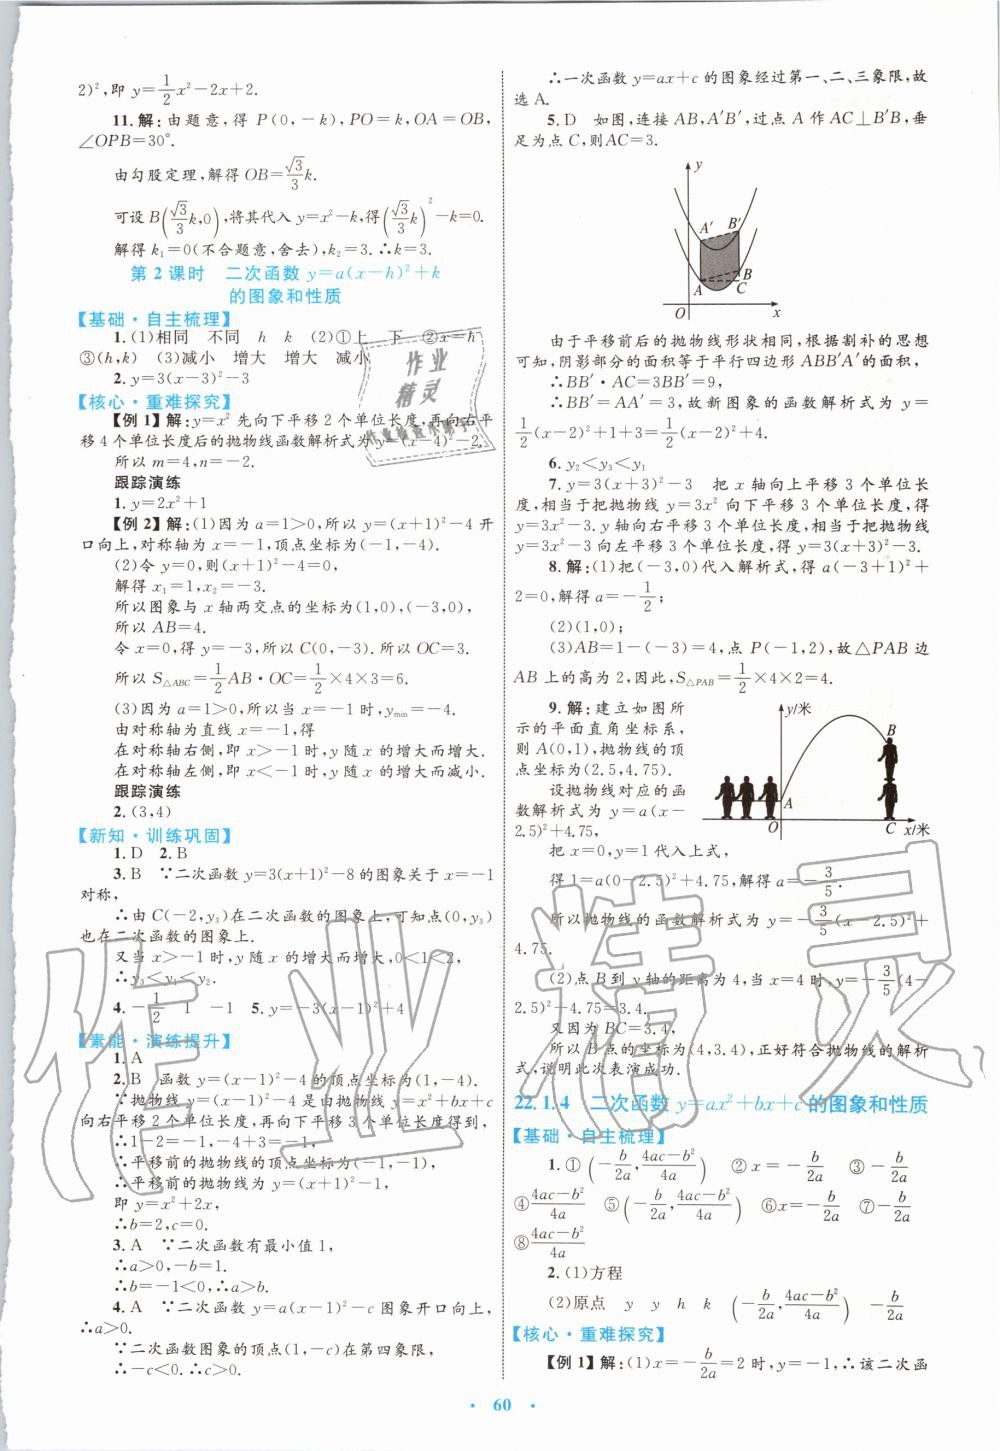 2)²,即 y=1/2x²-2x+2.
11.解:由题意,得 P(0,-k),PO=k,OA=OB,
∠OPB=30°.
由勾股定理,解得 OB=√3/3k.
可设 B(√3/3k,0),将其代入 y=x²-k,得(√3/3k)²-k=0.
解得 k₁=0(不合题意,舍去),k₂=3.∴k=3.
第2课时 二次函数 y=a(x-h)²+k
的图象和性质
【基础·自主梳理】
1.(1)相同 不同 h k (2)①上 下 ②x=h
③(h,k) (3)减小 增大 增大 减小
2.y=3(x-3)²-3
【核心·重难探究】
【例1】解:y=x² 先向下平移2个单位长度,再向右平
移4个单位长度后的抛物线函数解析式为 y=(x-4)²-2.
所以 m=4,n=-2.
跟踪演练
1.y=2x²+1
【例2】解:(1)因为 a=1>0,所以 y=(x+1)²-4 开
口向上,对称轴为 x=-1,顶点坐标为(-1,-4).
(2)令 y=0,则(x+1)²-4=0,
解得 x₁=1,x₂=-3.
所以图象与 x 轴两交点的坐标为(1,0),(-3,0),
所以 AB=4.
令 x=0,得 y=-3,所以 C(0,-3).所以 OC=3.
所以 S△ABC=1/2AB·OC=1/2×4×3=6.
(3)因为 a=1>0,所以当 x=-1 时,ymin=-4.
由对称轴为直线 x=-1,得
在对称轴右侧,即 x>-1 时,y 随 x 的增大而增大.
在对称轴左侧,即 x<-1 时,y 随 x 的增大而减小.
跟踪演练
2.(3,4)
【新知·训练巩固】
1.D 2.B
3.B ∵二次函数 y=3(x+1)²-8 的图象关于 x=-1
对称,
∴由 C(-2,y₃)在二次函数的图象上,可知点(0,y₃)
也在二次函数的图象上.
又当 x>-1 时,y 随 x 的增大而增大,0<1<2,
∴y₃<y₁<y₂.
4.-1/2 1 -1 5.y=-3(x-1)²+4
【素能·演练提升】
1.A
2.B 函数 y=(x-1)²-4 的顶点坐标为(1,-4).
∵抛物线 y=(x-1)²-4 是由抛物线 y=x²+bx+c
向右平移2个单位长度,再向下平移3个单位长度得到,
∴1-2=-1,-4+3=-1,
∴平移前的抛物线的顶点坐标为(-1,-1).
∴平移前的抛物线为 y=(x+1)²-1,
即 y=x²+2x,
∴b=2,c=0.
3.A ∵二次函数有最小值1,
∴a>0,-b=1.
∴b=-1<0,∴a>b.
4.A ∵二次函数 y=a(x-1)²-c 图象开口向上,
∴a>0.
∵二次函数图象的顶点(1,-c)在第四象限,
∴-c<0.∴c>0.
∴一次函数 y=ax+c 的图象经过第一、二、三象限,故
选A.
5.D 如图,连接 AB,A′B′,过点 A 作 AC⊥B′B,垂
足为点 C,则 AC=3.
y
A′
B′
A
B
C
O
x
由于平移前后的抛物线形状相同,根据割补的思想
可知,阴影部分的面积等于平行四边形 ABB′A′的面积,
∴BB′·AC=3BB′=9,
∴BB′=AA′=3,故新图象的函数解析式为 y=
1/2(x-2)²+1+3=1/2(x-2)²+4.
6.y₂<y₃<y₁
7.y=3(x+3)²-3 把 x 轴向上平移3个单位长
度,相当于把抛物线 y=3x² 向下平移3个单位长度,得
y=3x²-3.y 轴向右平移3个单位,相当于把抛物线
y=3x²-3 向左平移3个单位长度,得 y=3(x+3)²-3.
8.解:(1)把(-3,0)代入解析式,得 a(-3+1)²+
2=0,解得 a=-1/2;
(2)(1,0);
(3)AB=1-(-3)=4,点 P(-1,2),故△PAB 边
AB 上的高为2,因此,S△PAB=1/2×4×2=4.
9.解:建立如图所
示的平面直角坐标系,
则 A(0,1),抛物线的顶
点坐标为(2.5,4.75).
设抛物线对应的函
数解析式为 y=a(x-
2.5)²+4.75,
y/米
B
A
O
C
x/米
把 x=0,y=1 代入上式,
得 1=a(0-2.5)²+4.75,解得 a=-3/5.
所以抛物线的函数解析式为 y=-3/5(x-2.5)²+
4.75.
(2)点 B 到 y 轴的距离为4,当 x=4 时,y=-3/5(4-
2.5)²+4.75=3.4.
又因为 BC=3.4,
所以 B 点的坐标为(4,3.4),正好符合抛物线的解析
式,说明此次表演成功.
22.1.4 二次函数 y=ax²+bx+c 的图象和性质
【基础·自主梳理】
1.①(-b/2a,4ac-b²/4a) ②x=-b/2a ③-b/2a
④4ac-b²/4a ⑤(-b/2a,4ac-b²/4a) ⑥x=-b/2a ⑦-b/2a
⑧4ac-b²/4a
2.(1)方程
(2)原点 y y h k (-b/2a,4ac-b²/4a) -b/2a
【核心·重难探究】
【例1】解:(1)x=-b/2a=2 时,y=-1,∴该二次函
· 60 ·
作业
精灵
作业精灵